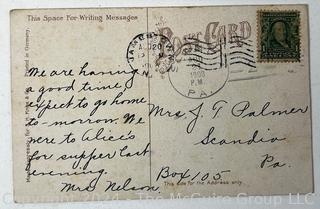 This Space For Writing Messages
POST CARD
We are having
a good time
expect to go home
to-morrow. We
were to Alice's
for supper last
evening.
Mrs Nelson
Mrs J. T. Palmer
Scandia
Pa.
Box 105
This side for the Address only.
Printed in Germany.
PA.
P.M.